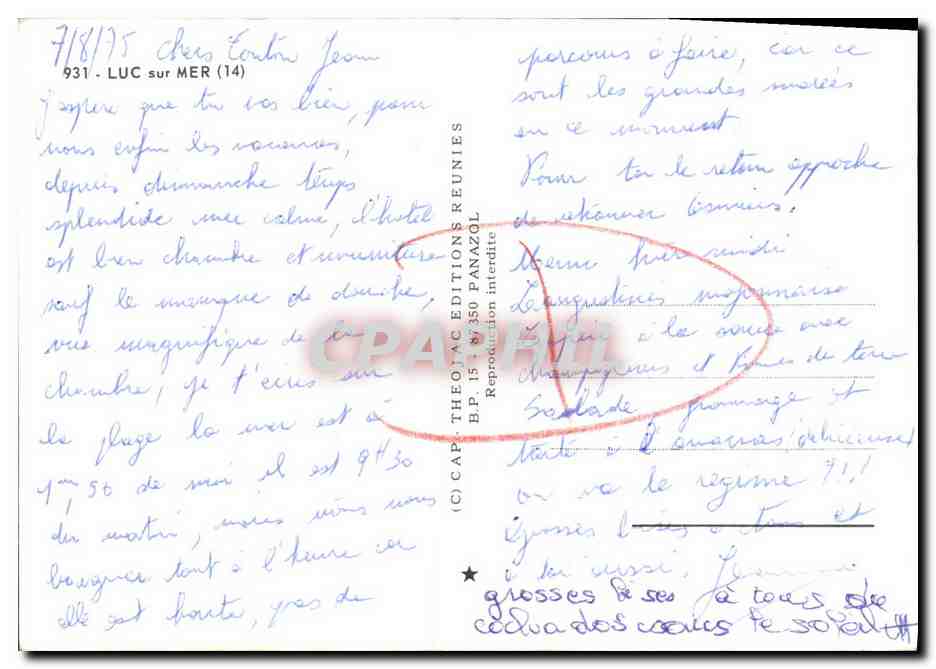 7/8/75 Chers Tonton Jean
931 - LUC sur MER (14)
J'espère que tu vas bien, pour
nous enfin les vacances,
depuis dimanche temps
splendide mer calme, l'hotel
est bien chambre et nourriture
sauf le manque de douche,
vue magnifique de la
chambre, je t'écris sur
la plage la mer est à
1m,50 de moi il est 9H30
du matin, nous irons nous
baigner tout à l'heure car
elle est haute, pas de
(C) CAP - THEOJAC EDITIONS REUNIES
B.P. 15 - 87350 PANAZOL
Reproduction interdite
CPAPHIL
parcours à faire, car ce
sont les grandes marées
en ce moment.
Pour toi le retour approche
de retrouver
Menu hier midi
Langoustines mayonnaise
à la sauce avec
champignons et Pommes de terre
Salade fromage et
tarte à l'ananas délicieuse!
on va le régime ?!!
Grosses bises à tous et
à toi aussi.
grosses bises à tous de
calvados vans le soleil